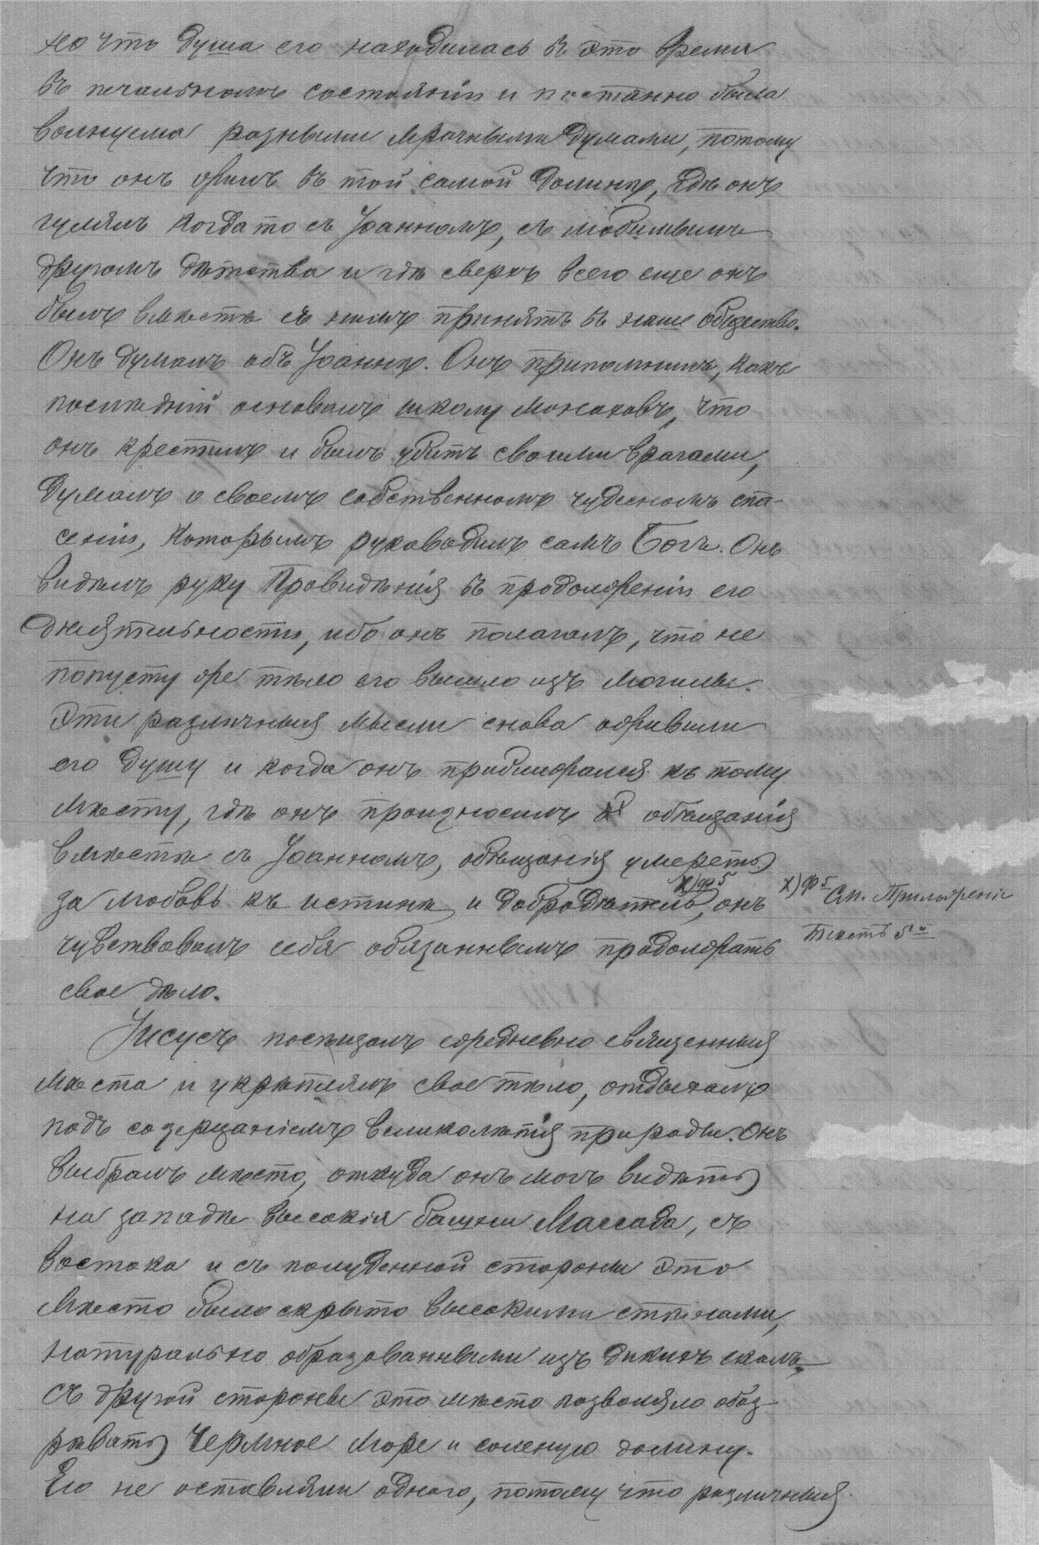 но что душа его находилась въ это время
въ печальномъ состояніи и постоянно была
волнуема разными мрачными думами, потому
что онъ жилъ въ той самой долинѣ, гдѣ онъ
гулялъ когда то съ Іоанномъ, съ любимымъ
другомъ дѣтства и гдѣ сверхъ всего еще онъ
былъ вмѣстѣ съ нимъ принятъ въ наше общество.
Онъ думалъ объ Іоаннѣ. Онъ припомнилъ, какъ
послѣдній основалъ школу монаховъ, что
онъ крестилъ и былъ убитъ своими врагами,
думалъ о своемъ собственномъ чудесномъ спа-
сеніи, которымъ руководилъ самъ Богъ. Онъ
видѣлъ руку Провидѣнія въ продолженіи его
дѣятельности, ибо онъ полагалъ, что не
попусту же тѣло его вышло изъ могилы.
Эти различныя мысли снова оживили
его душу и когда онъ приближался къ тому
мѣсту, гдѣ онъ произносилъ обѣщанія
вмѣстѣ съ Іоанномъ, обѣщанія умереть
за любовь къ истинѣ и добродѣтель х) ф 5, онъ
х) ф 5 См. Приложеніе
Текстъ 5й
чувствовалъ себя обязаннымъ продолжать
свое дѣло.
Іисусъ посѣщалъ ежедневно священныя
мѣста и укрѣплялъ свое тѣло, отдыхалъ
подъ созерцаніемъ великолѣпія природы. Онъ
выбралъ мѣсто, откуда онъ могъ видѣть
на западѣ высокія башни Массада, съ
востока и съ полуденной стороны это
мѣсто было скрыто высокими стѣнами,
натурально образованными изъ дикихъ скалъ,
съ другой стороны это мѣсто позволяло обоз-
рѣвать Чермное море и соленую долину.
Его не оставляли одного, потому что различныя